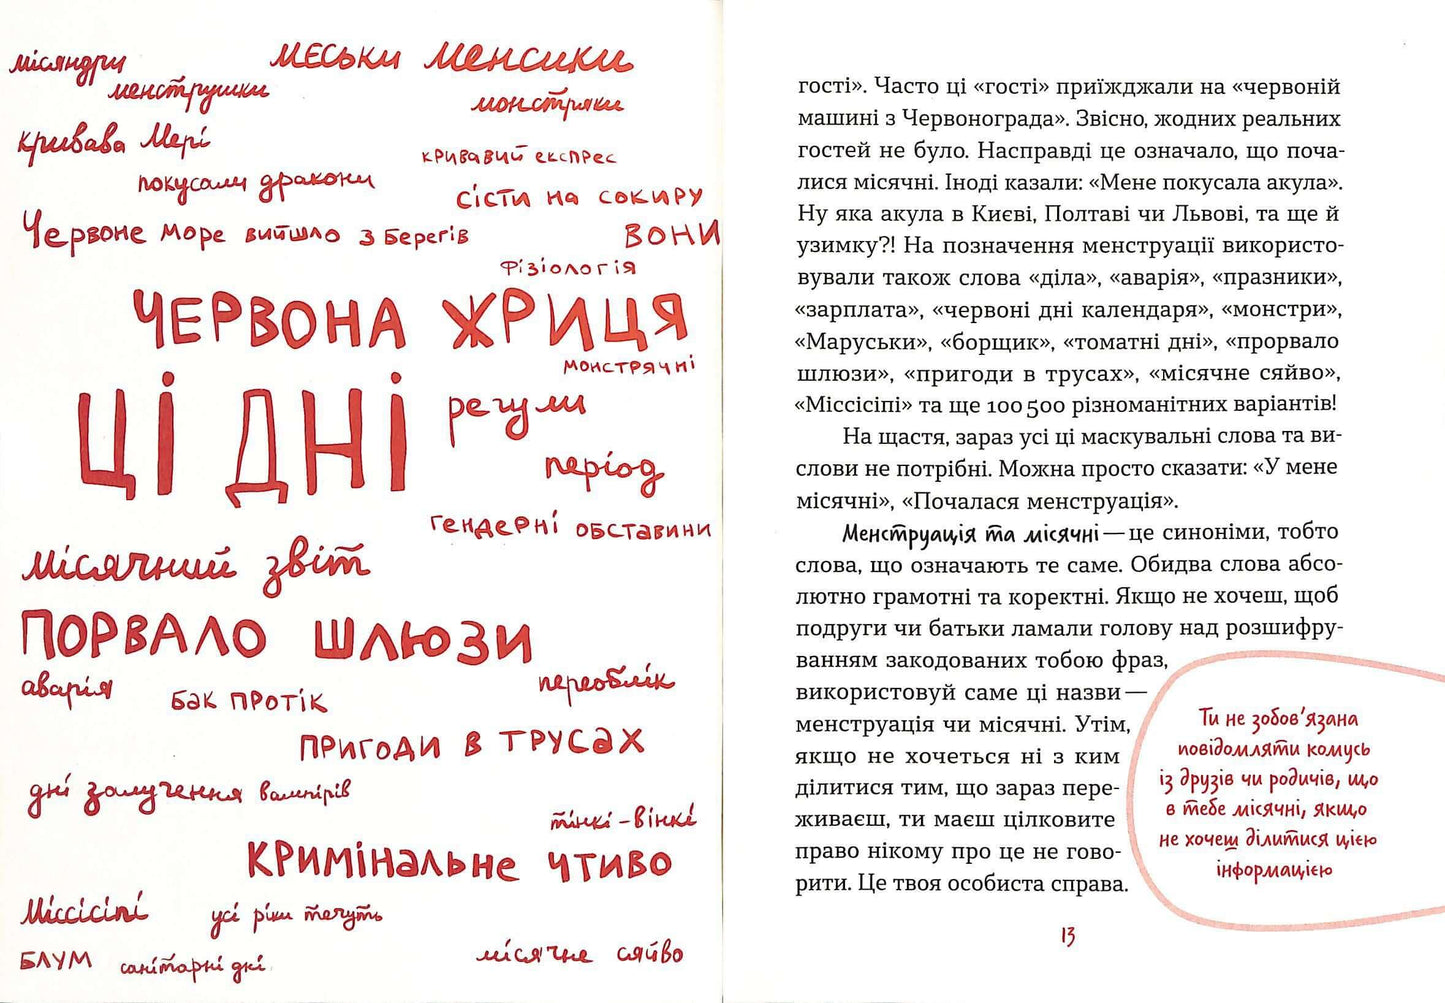 місяндри
меськи менсики
менструшки
монстряки
кривава Мері
кривавий експрес
покусали дракони
сісти на сокиру
Червоне море вийшло з берегів
вони
фізіологія
червона жриця
монстрячні
ці дні
регули
період
гендерні обставини
місячний звіт
порвало шлюзи
аварія
бак протік
переоблік
пригоди в трусах
дні залучення вампірів
тінкі-вінкі
кримінальне чтиво
Міссісіпі
усі ріки течуть
БЛУМ
санітарні дні
місячне сяйво
гості». Часто ці «гості» приїжджали на «червоній
машині з Червонограда». Звісно, жодних реальних
гостей не було. Насправді це означало, що поча-
лися місячні. Іноді казали: «Мене покусала акула».
Ну яка акула в Києві, Полтаві чи Львові, та ще й
узимку?! На позначення менструації використо-
вували також слова «діла», «аварія», «празники»,
«зарплата», «червоні дні календаря», «монстри»,
«Маруськи», «борщик», «томатні дні», «прорвало
шлюзи», «пригоди в трусах», «місячне сяйво»,
«Міссісіпі» та ще 100 500 різноманітних варіантів!
На щастя, зараз усі ці маскувальні слова та ви-
слови не потрібні. Можна просто сказати: «У мене
місячні», «Почалася менструація».
Менструація та місячні — це синоніми, тобто
слова, що означають те саме. Обидва слова абсо-
лютно грамотні та коректні. Якщо не хочеш, щоб
подруги чи батьки ламали голову над розшифру-
ванням закодованих тобою фраз,
використовуй саме ці назви —
менструація чи місячні. Утім,
якщо не хочеться ні з ким
ділитися тим, що зараз пере-
живаєш, ти маєш цілковите
право нікому про це не гово-
рити. Це твоя особиста справа.
Ти не зобов'язана
повідомляти комусь
із друзів чи родичів, що
в тебе місячні, якщо
не хочеш ділитися цією
інформацією
13